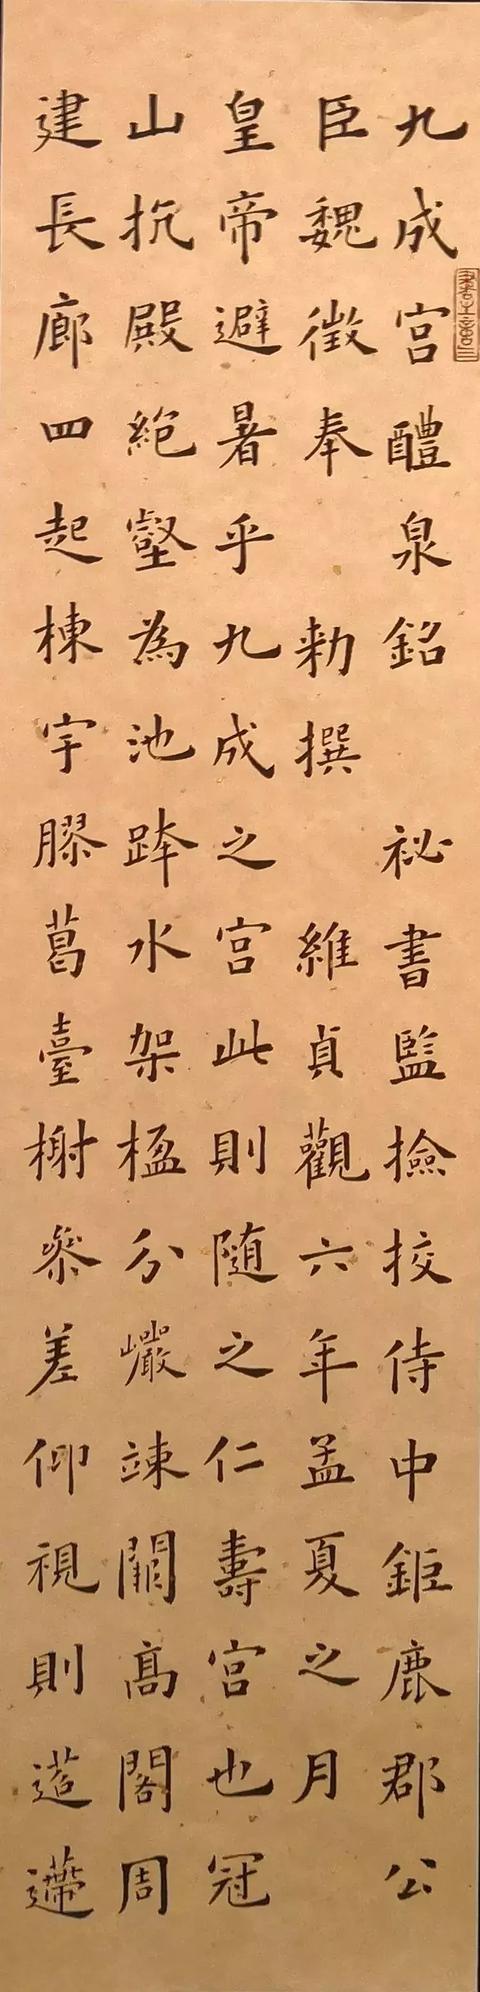 九成宮醴泉銘 祕書監撿挍侍中鉅鹿郡公
臣魏徵奉 勅撰 維貞觀六年孟夏之月
皇帝避暑乎九成之宮此則随之仁壽宮也冠
山抗殿絕壑為池跨水架楹分巖竦闕高閣周
建長廊四起棟宇膠葛臺榭參差仰視則迢遰